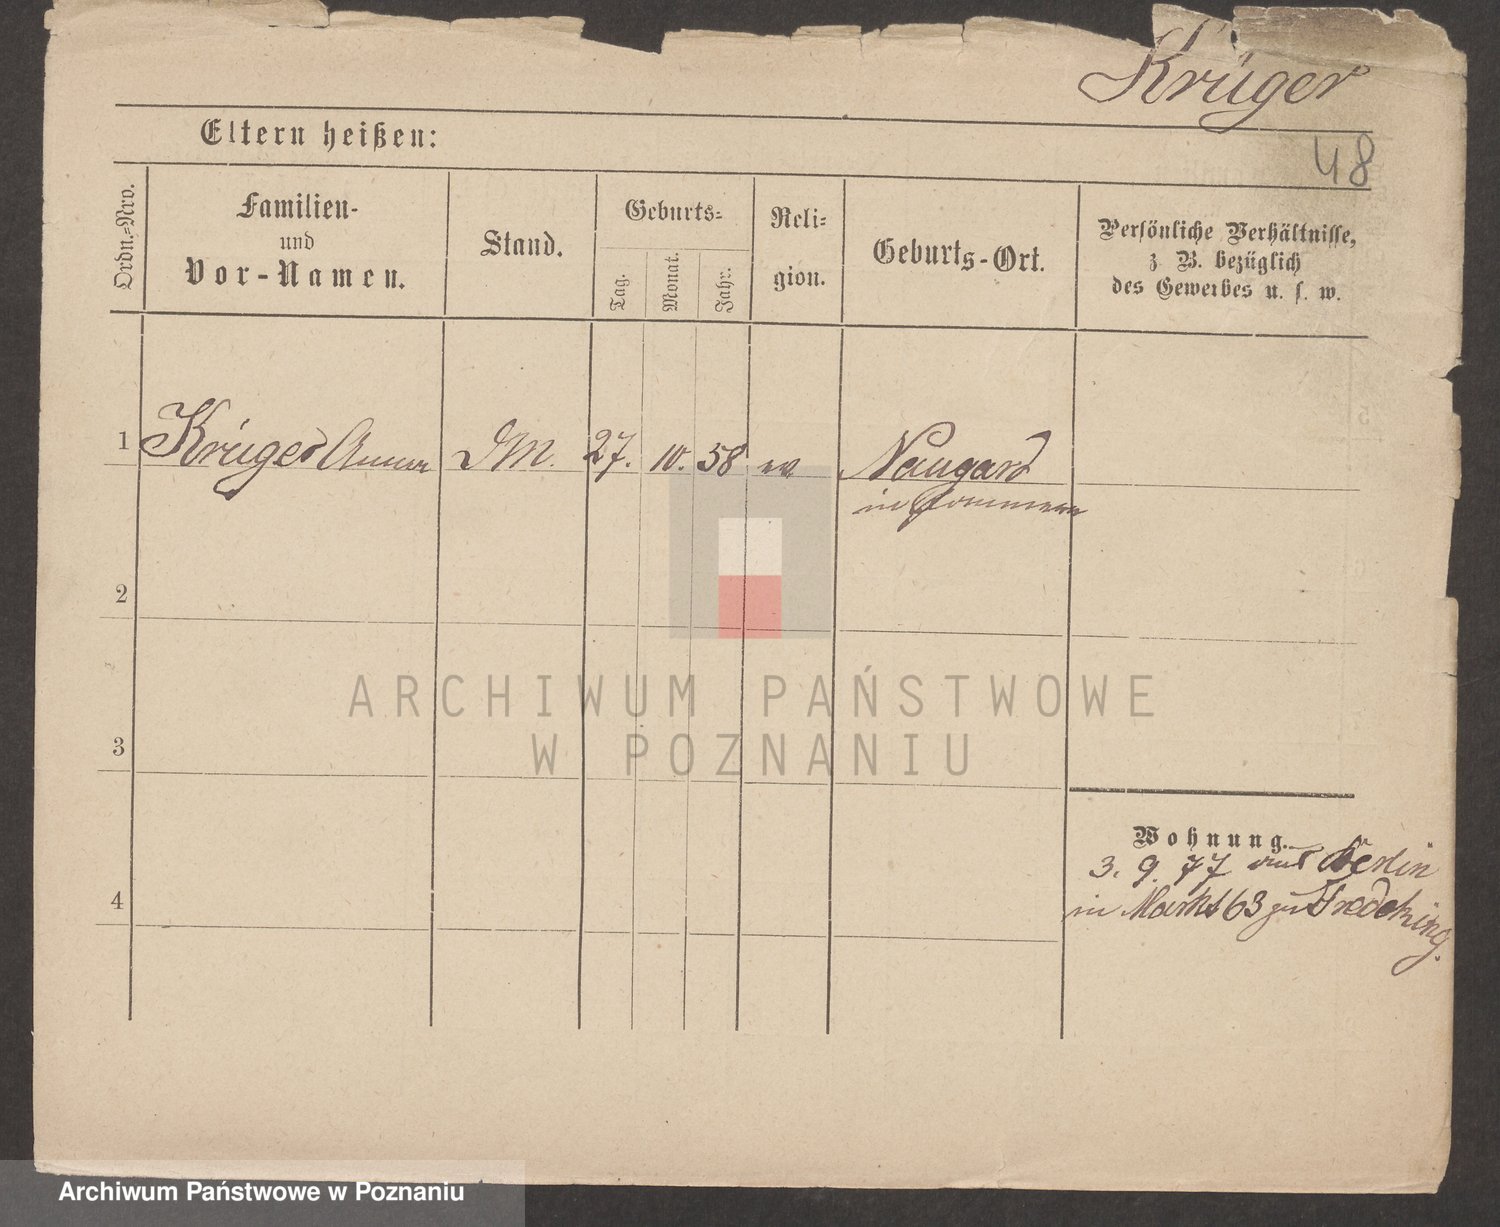 Krüger
48
Eltern heißen:
Ordn.=Nro.
Familien-
und
Vor-Namen.
Stand.
Geburts=
Tag.
Monat.
Jahr.
Reli=
gion.
Geburts-Ort.
Persönliche Verhältnisse,
z. B. bezüglich
des Gewerbes u. s. w.
1 Krüger Anna DM. 27. 10. 58 ev Naugard
in Pommern
2
3
4
Wohnung.
3. 9. 77 aus Berlin
in Markt 63 zu
ARCHIWUM PAŃSTWOWE
W POZNANIU
Archiwum Państwowe w Poznaniu